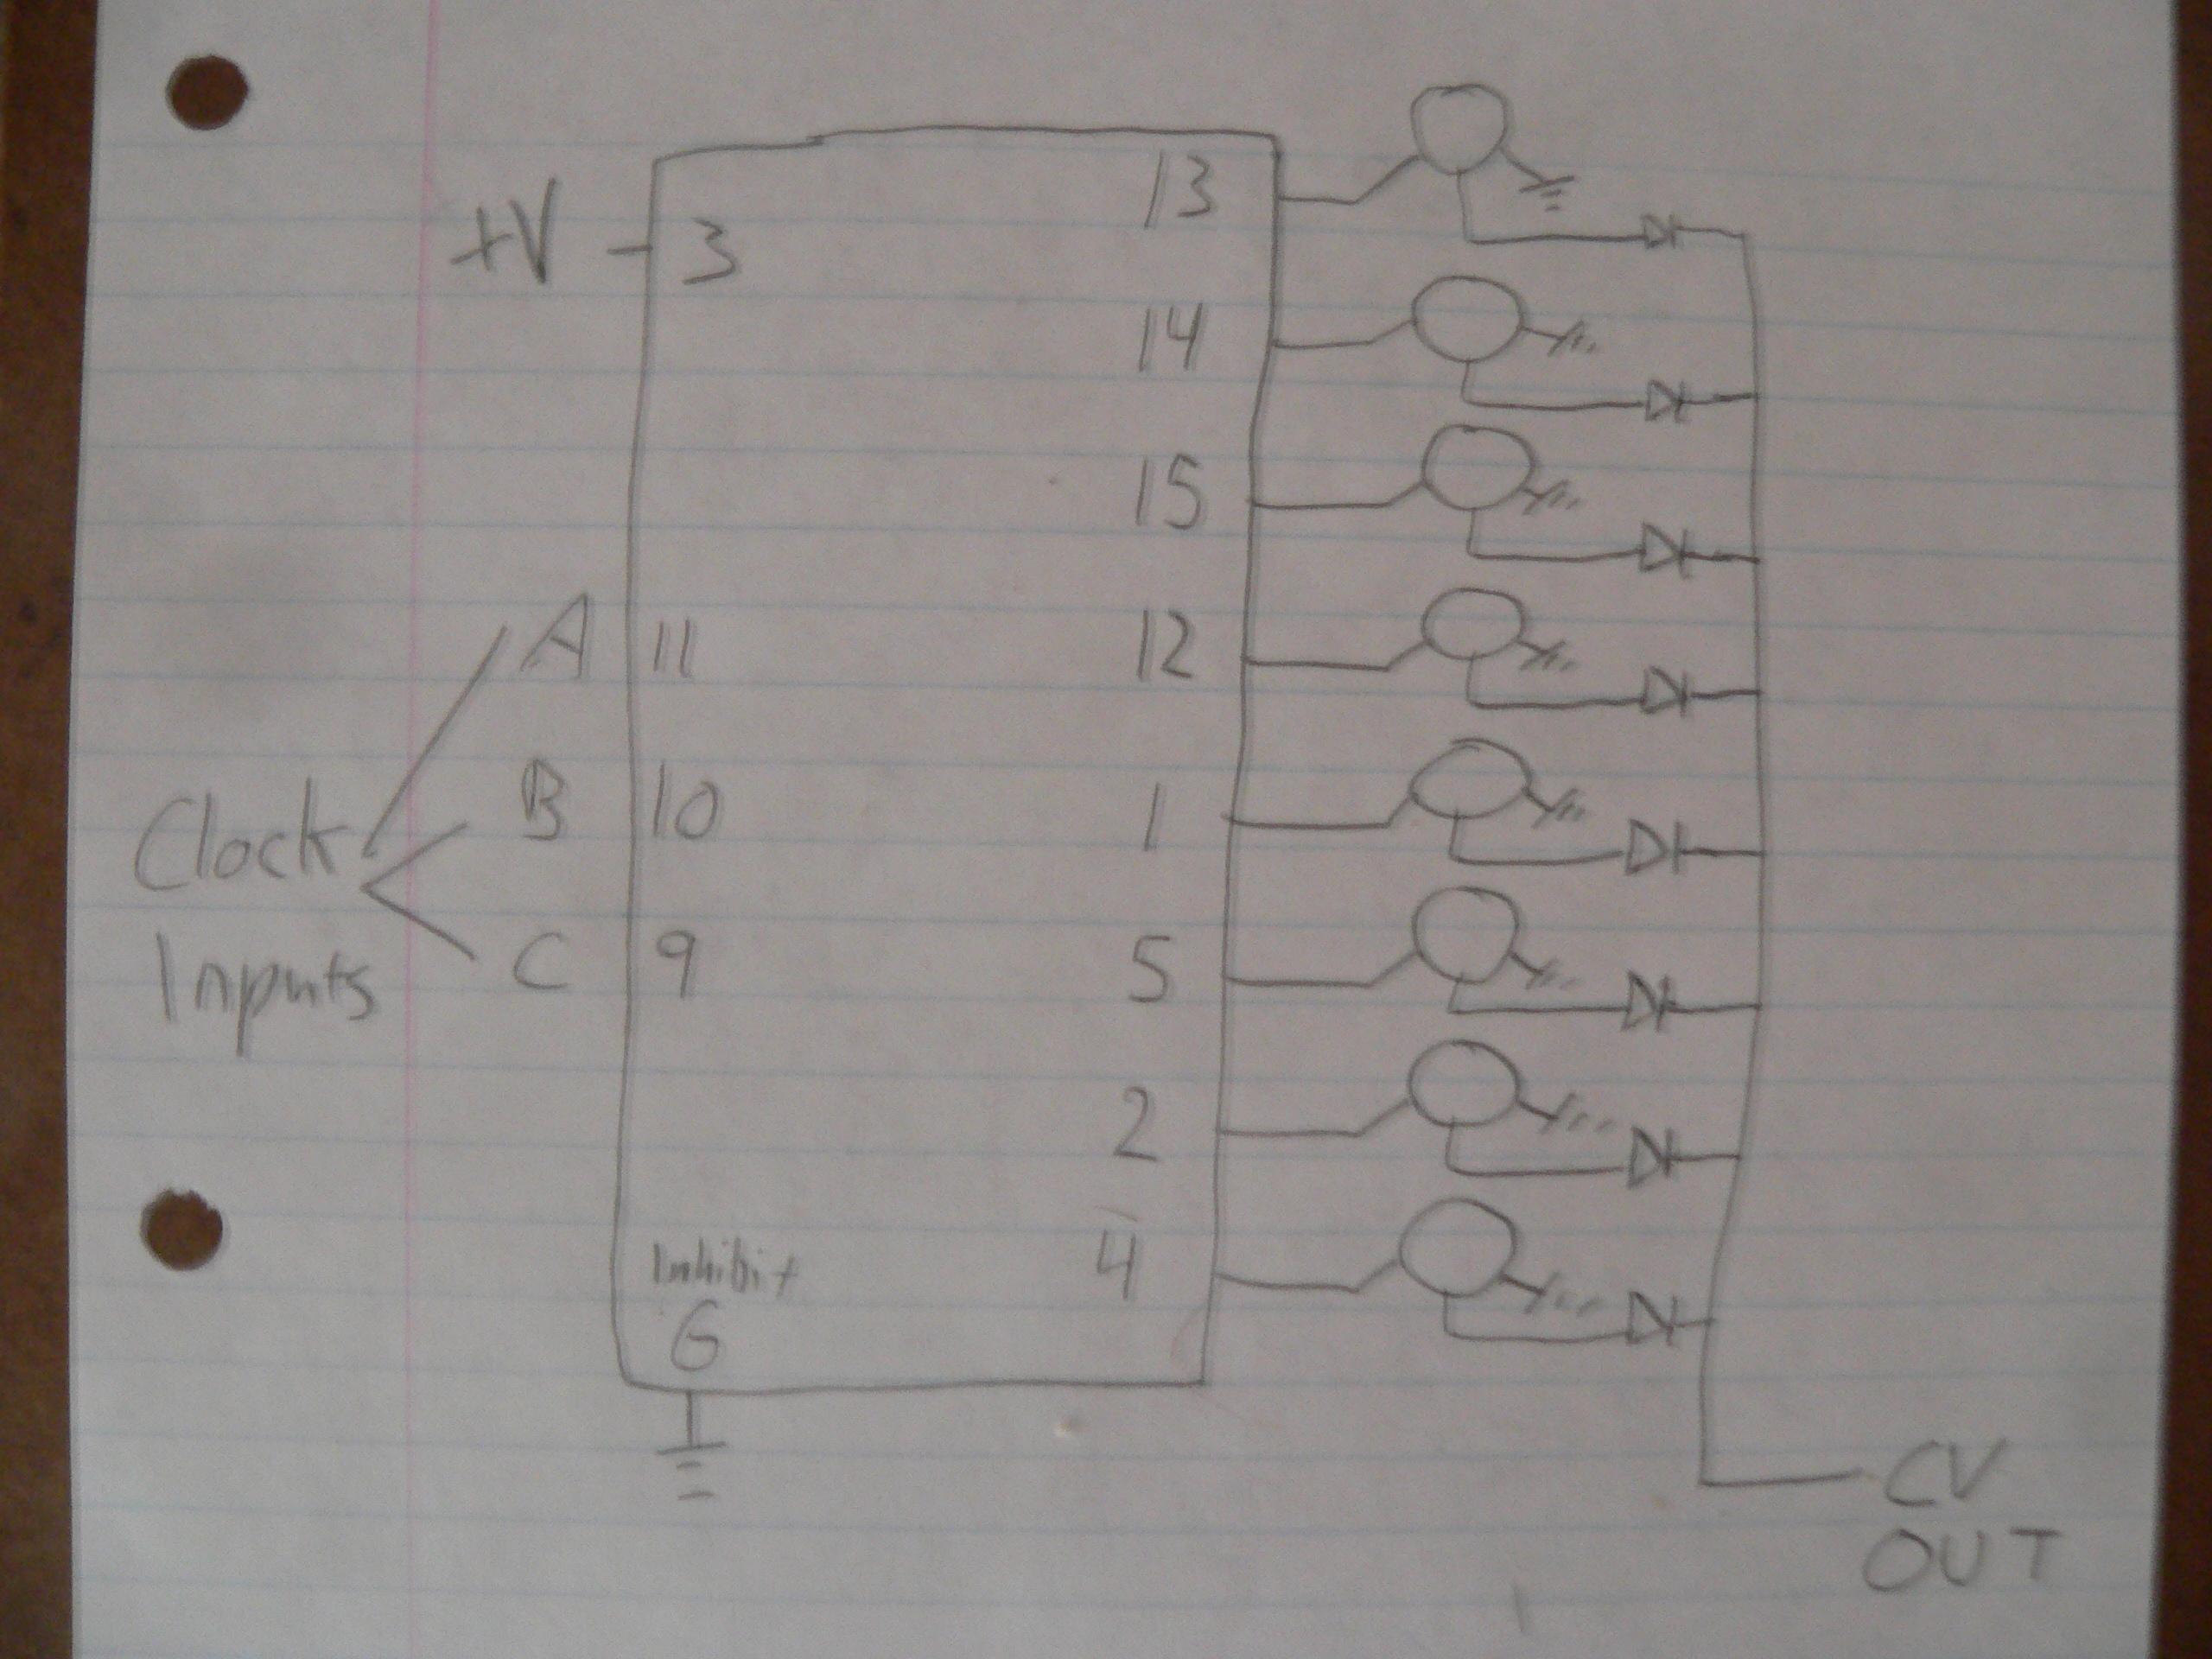 +V
3
13
14
15
A
11
12
B
10
1
Clock
Inputs
C
9
5
2
4
Inhibit
6
CV
OUT